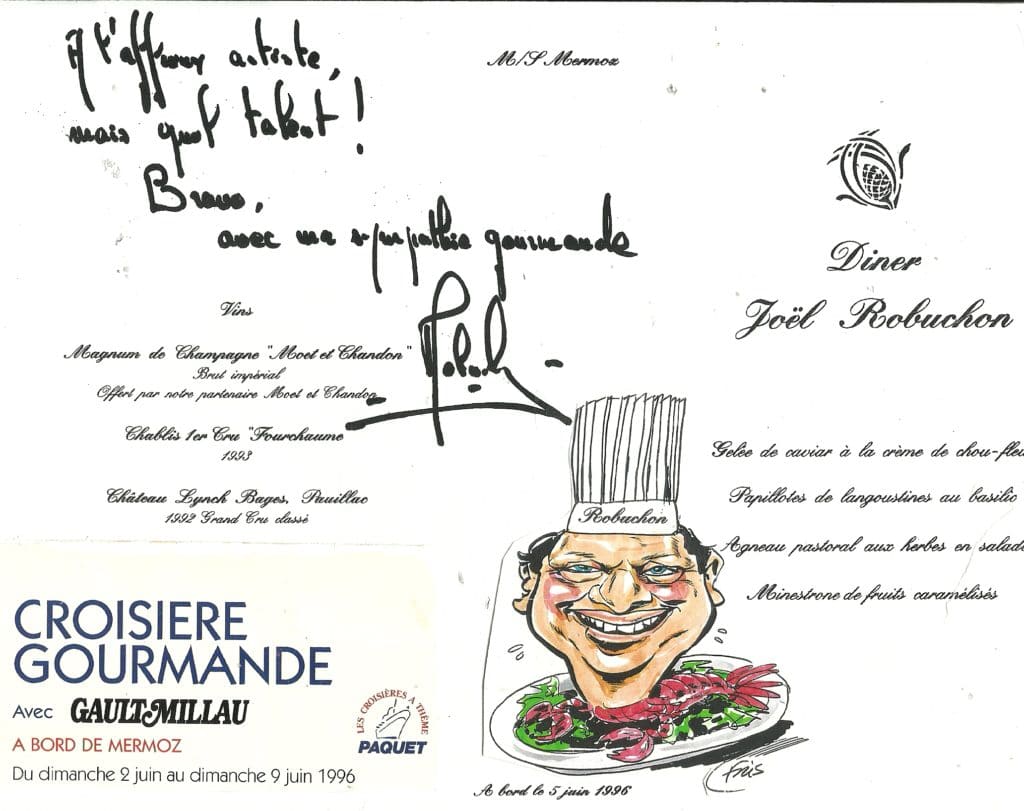 A t'affreux artiste,
mais quel talent !
Bravo,
avec ma sympathie gourmande
Robuchon
M/S Mermoz
Diner
Joël Robuchon
Vins
Magnum de Champagne "Moet et Chandon"
Brut impérial
Offert par notre partenaire Moet et Chandon
Chablis 1er Cru "Fourchaume
1993
Château Lynch Bages, Pauillac
1992 Grand Cru classé
Gelée de caviar à la crème de chou-fleu
Papillotes de langoustines au basilic
Agneau pastoral aux herbes en salade
Minestrone de fruits caramélisés
Robuchon
CROISIERE
GOURMANDE
Avec GAULT MILLAU
A BORD DE MERMOZ
Du dimanche 2 juin au dimanche 9 juin 1996
LES CROISIÈRES A THÈME
PAQUET
Fris
A bord le 5 juin 1996